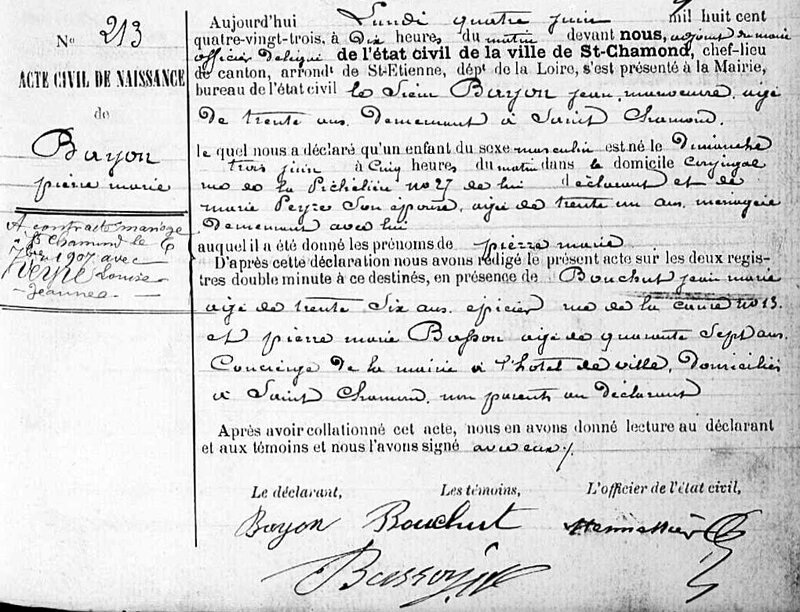 N° 213
ACTE CIVIL DE NAISSANCE
de
Bayon
pierre marie
A contracté mariage
à St Chamond le 6
7bre 1907 avec
Veyre Louise
Jeanne
Aujourd'hui Lundi quatre juin mil huit cent
quatre-vingt-trois, à Dix heures du matin devant nous, adjoint du maire
officier délégué de l'état civil de la ville de St-Chamond, chef-lieu
de canton, arrondt de St-Etienne, dépt de la Loire, s'est présenté à la Mairie,
bureau de l'état civil le Sieur Bayon jean, manoeuvre, agé
de trente ans. Demeurant à Saint Chamond.
le quel nous a déclaré qu'un enfant du sexe masculin est né le Dimanche
trois juin à Cinq heures du matin dans le domicile Conjugal
rue de la no 27 de lui déclarant et de
marie Peyre Son épouse, agée de trente un ans, menagère
Demeurant avec lui
auquel il a été donné les prénoms de pierre marie
D'après cette déclaration nous avons rédigé le présent acte sur les deux regis-
tres double minute à ce destinés, en présence de Bouchut jean marie
agé de trente Six ans. epicier rue de la no 13.
et pierre marie Basson agé de quarante Sept ans.
Concierge de la mairie à l'hotel de ville, Domiciliés
à Saint Chamond, non parents au déclarant
Après avoir collationné cet acte, nous en avons donné lecture au déclarant
et aux témoins et nous l'avons signé avec eux
Le déclarant, Les témoins, L'officier de l'état civil,
Bayon Bouchut
Basson